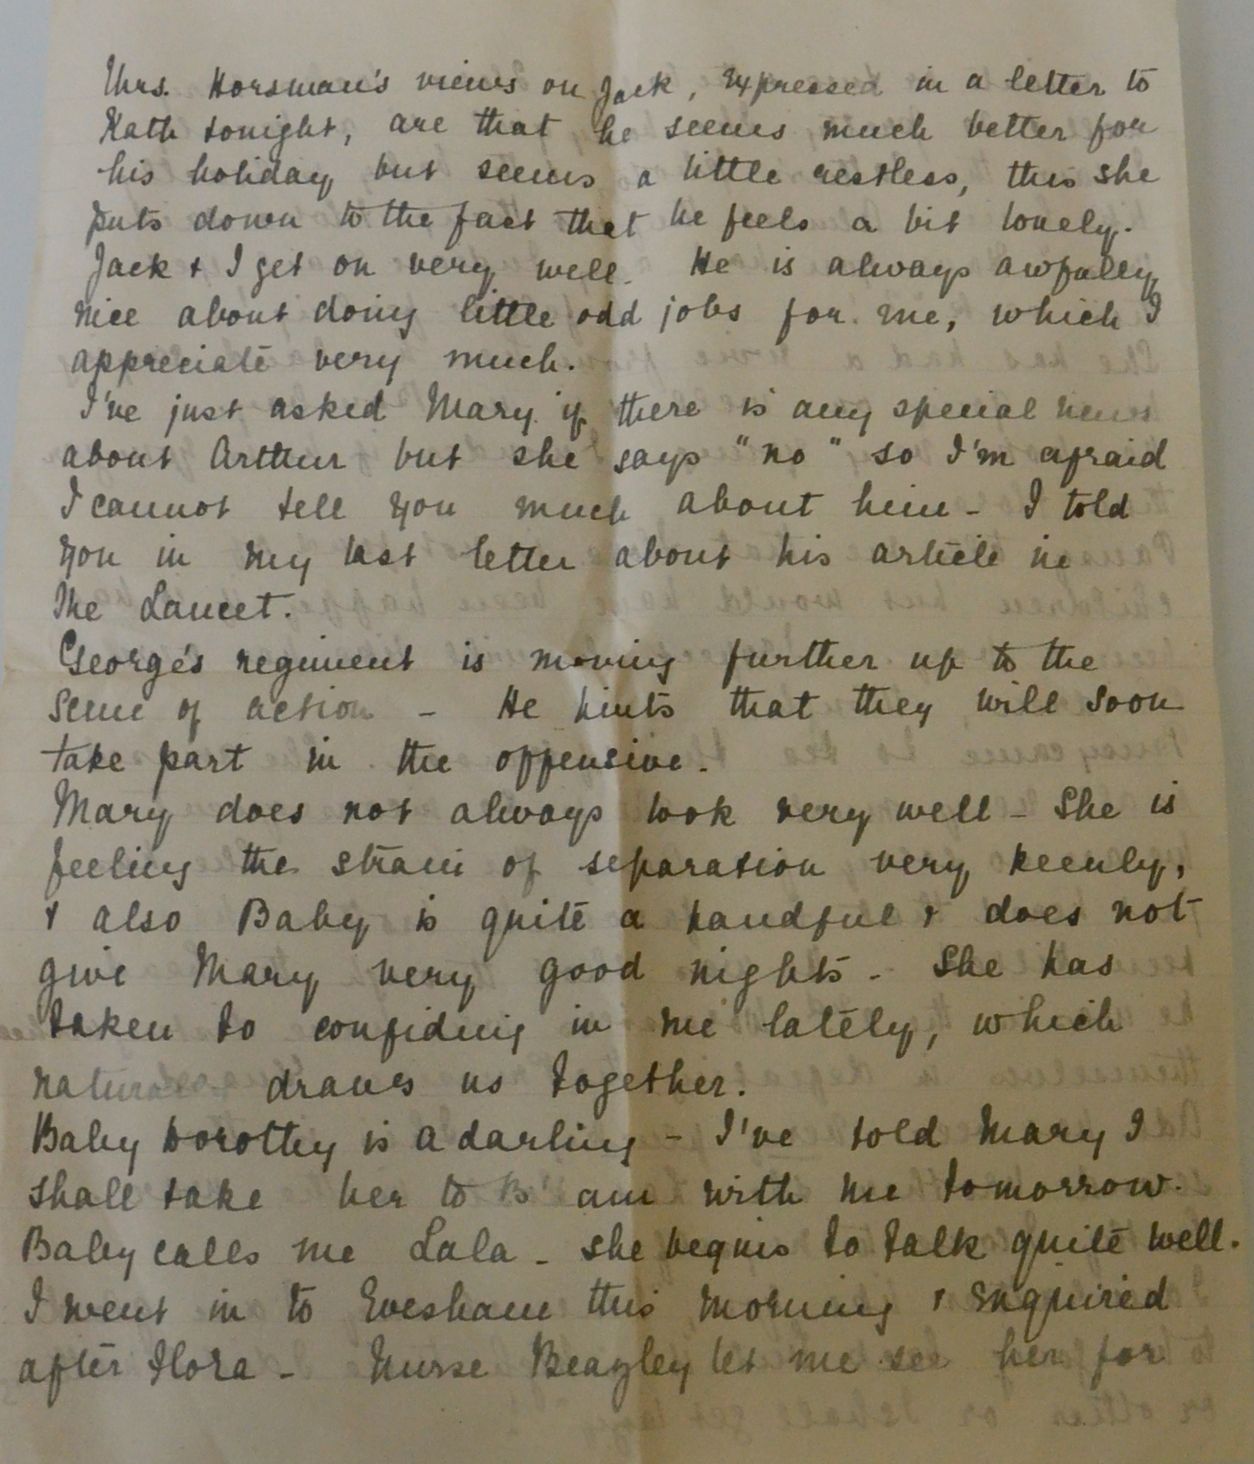 Mrs. Horsman's views on Jack, expressed in a letter to
Kath tonight, are that he seems much better for
his holiday but seems a little restless, this she
puts down to the fact that he feels a bit lonely.
Jack & I get on very well. He is always awfully
nice about doing little odd jobs for me, which I
appreciate very much.
I've just asked Mary if there is any special news
about Arthur but she says "no" so I'm afraid
I cannot tell you much about him - I told
you in my last letter about his article in
The Lancet.
George's regiment is moving further up to the
scene of action - He hints that they will soon
take part in the offensive.
Mary does not always look very well - She is
feeling the strain of separation very keenly,
& also Baby is quite a handful & does not
give Mary very good nights - She has
taken to confiding in me lately, which
draws us together.
Baby Dorothy is a darling - I've told Mary I
shall take her to B'ham with me tomorrow.
Baby calls me Lala - she begins to talk quite well.
I went in to Evesham this morning & enquired
after Flora - Nurse Beazley let me see her for